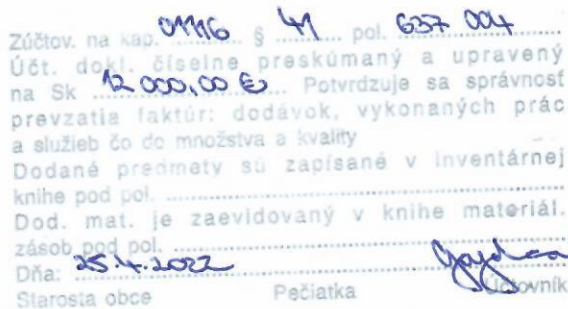 Zúčtov. na kap. 01116 § 41 pol. 637 004
Účt. dokl. číselne preskúmaný a upravený
na Sk 12 000,00 € Potvrdzuje sa správnosť
prevzatia faktúr: dodávok, vykonaných prác
a služieb čo do množstva a kvality
Dodané predmety sú zapísané v inventárnej
knihe pod pol. ....................
Dod. mat. je zaevidovaný v knihe materiál.
zásob pod pol. ....................
Dňa: 25.4.2022
Starosta obce Pečiatka Účtovník